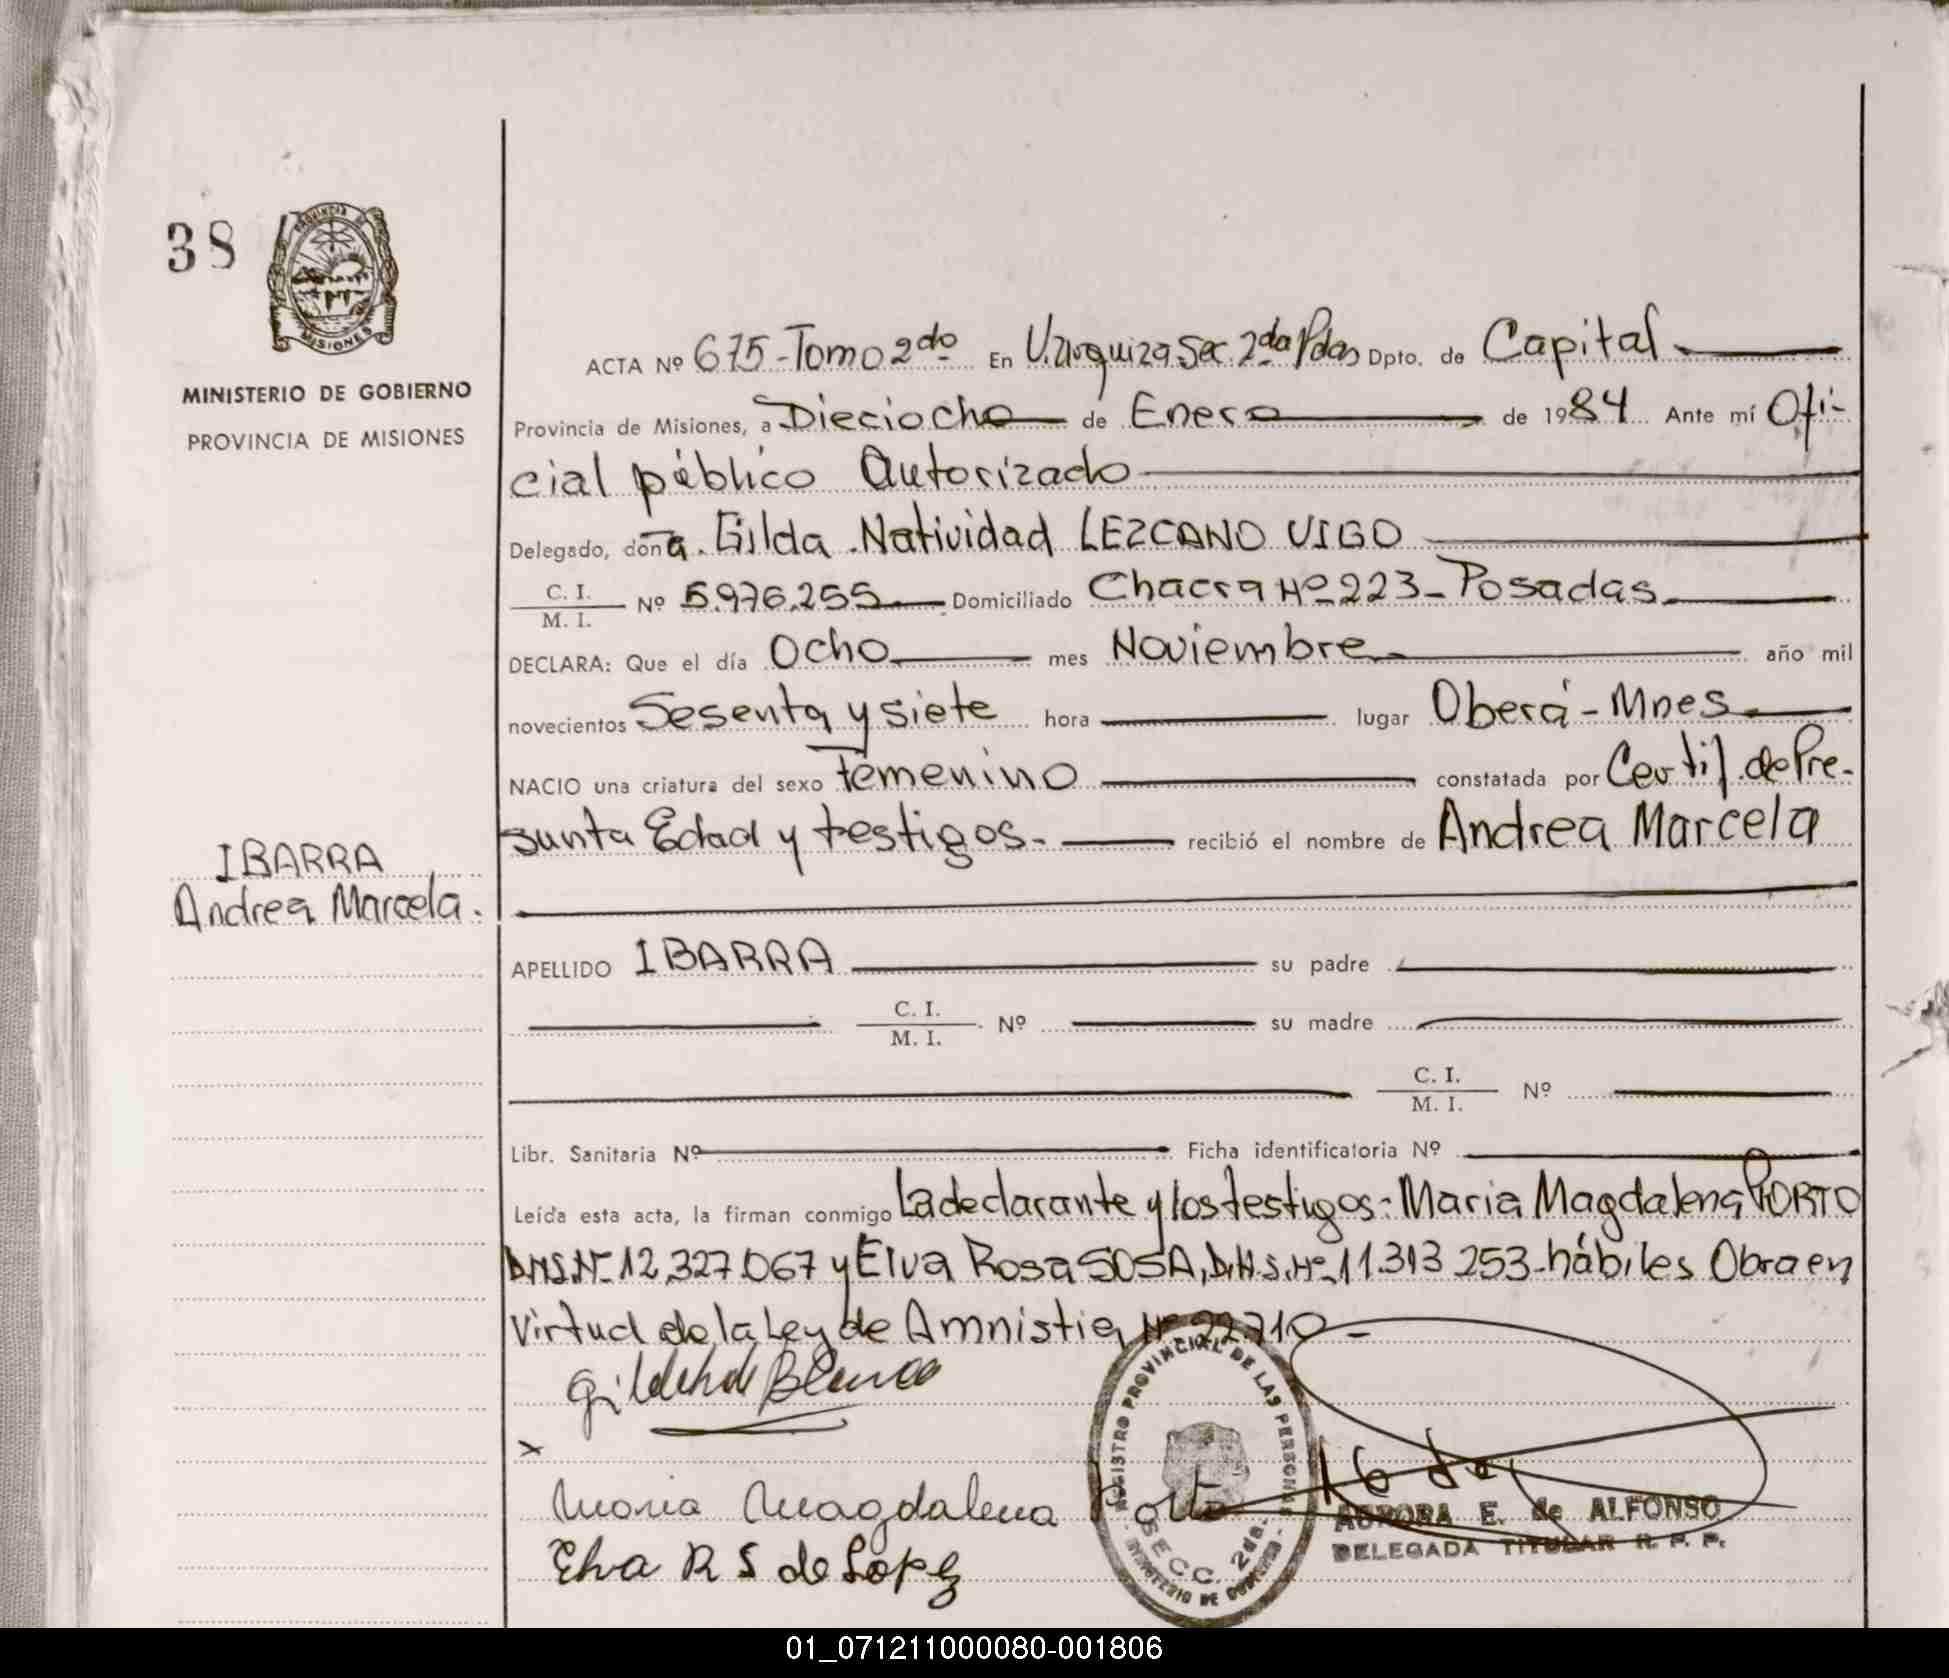 38
PROVINCIA DE
MISIONES
MINISTERIO DE GOBIERNO
PROVINCIA DE MISIONES
ACTA Nº 675-Tomo 2do En U.Zurquiza Sec. 2da Pdas Dpto. de Capital
Provincia de Misiones, a Dieciocho de Enero de 1984 Ante mí Ofi-
cial público Autorizado
Delegado, doña. Gilda Natividad LEZCANO VIGO
C. I.
M. I. Nº 5.976.255 Domiciliado Chacra Nº 223-Posadas
DECLARA: Que el día Ocho mes Noviembre año mil
novecientos Sesenta y siete hora lugar Oberá-Mnes
NACIO una criatura del sexo Femenino constatada por Certif. de Pre-
sunta Edad y testigos. recibió el nombre de Andrea Marcela
IBARRA
Andrea Marcela.
APELLIDO IBARRA su padre
C. I.
M. I. Nº su madre
C. I.
M. I. Nº
Libr. Sanitaria Nº Ficha identificatoria Nº
Leída esta acta, la firman conmigo La declarante y los testigos: Maria Magdalena PORTO
Nº 12.327.067 y Elva Rosa SOSA, Nº 11.313 253-hábiles Obra en
Virtud de la Ley de Amnistia Nº 22.710-
Maria Magdalena Porto
Elva R S de Lopez
REGISTRO PROVINCIAL DE LAS PERSONAS
SECC. 2da.
MINISTERIO DE GOBIERNO
AURORA E. de ALFONSO
DELEGADA TITULAR R. P. P.
01_071211000080-001806